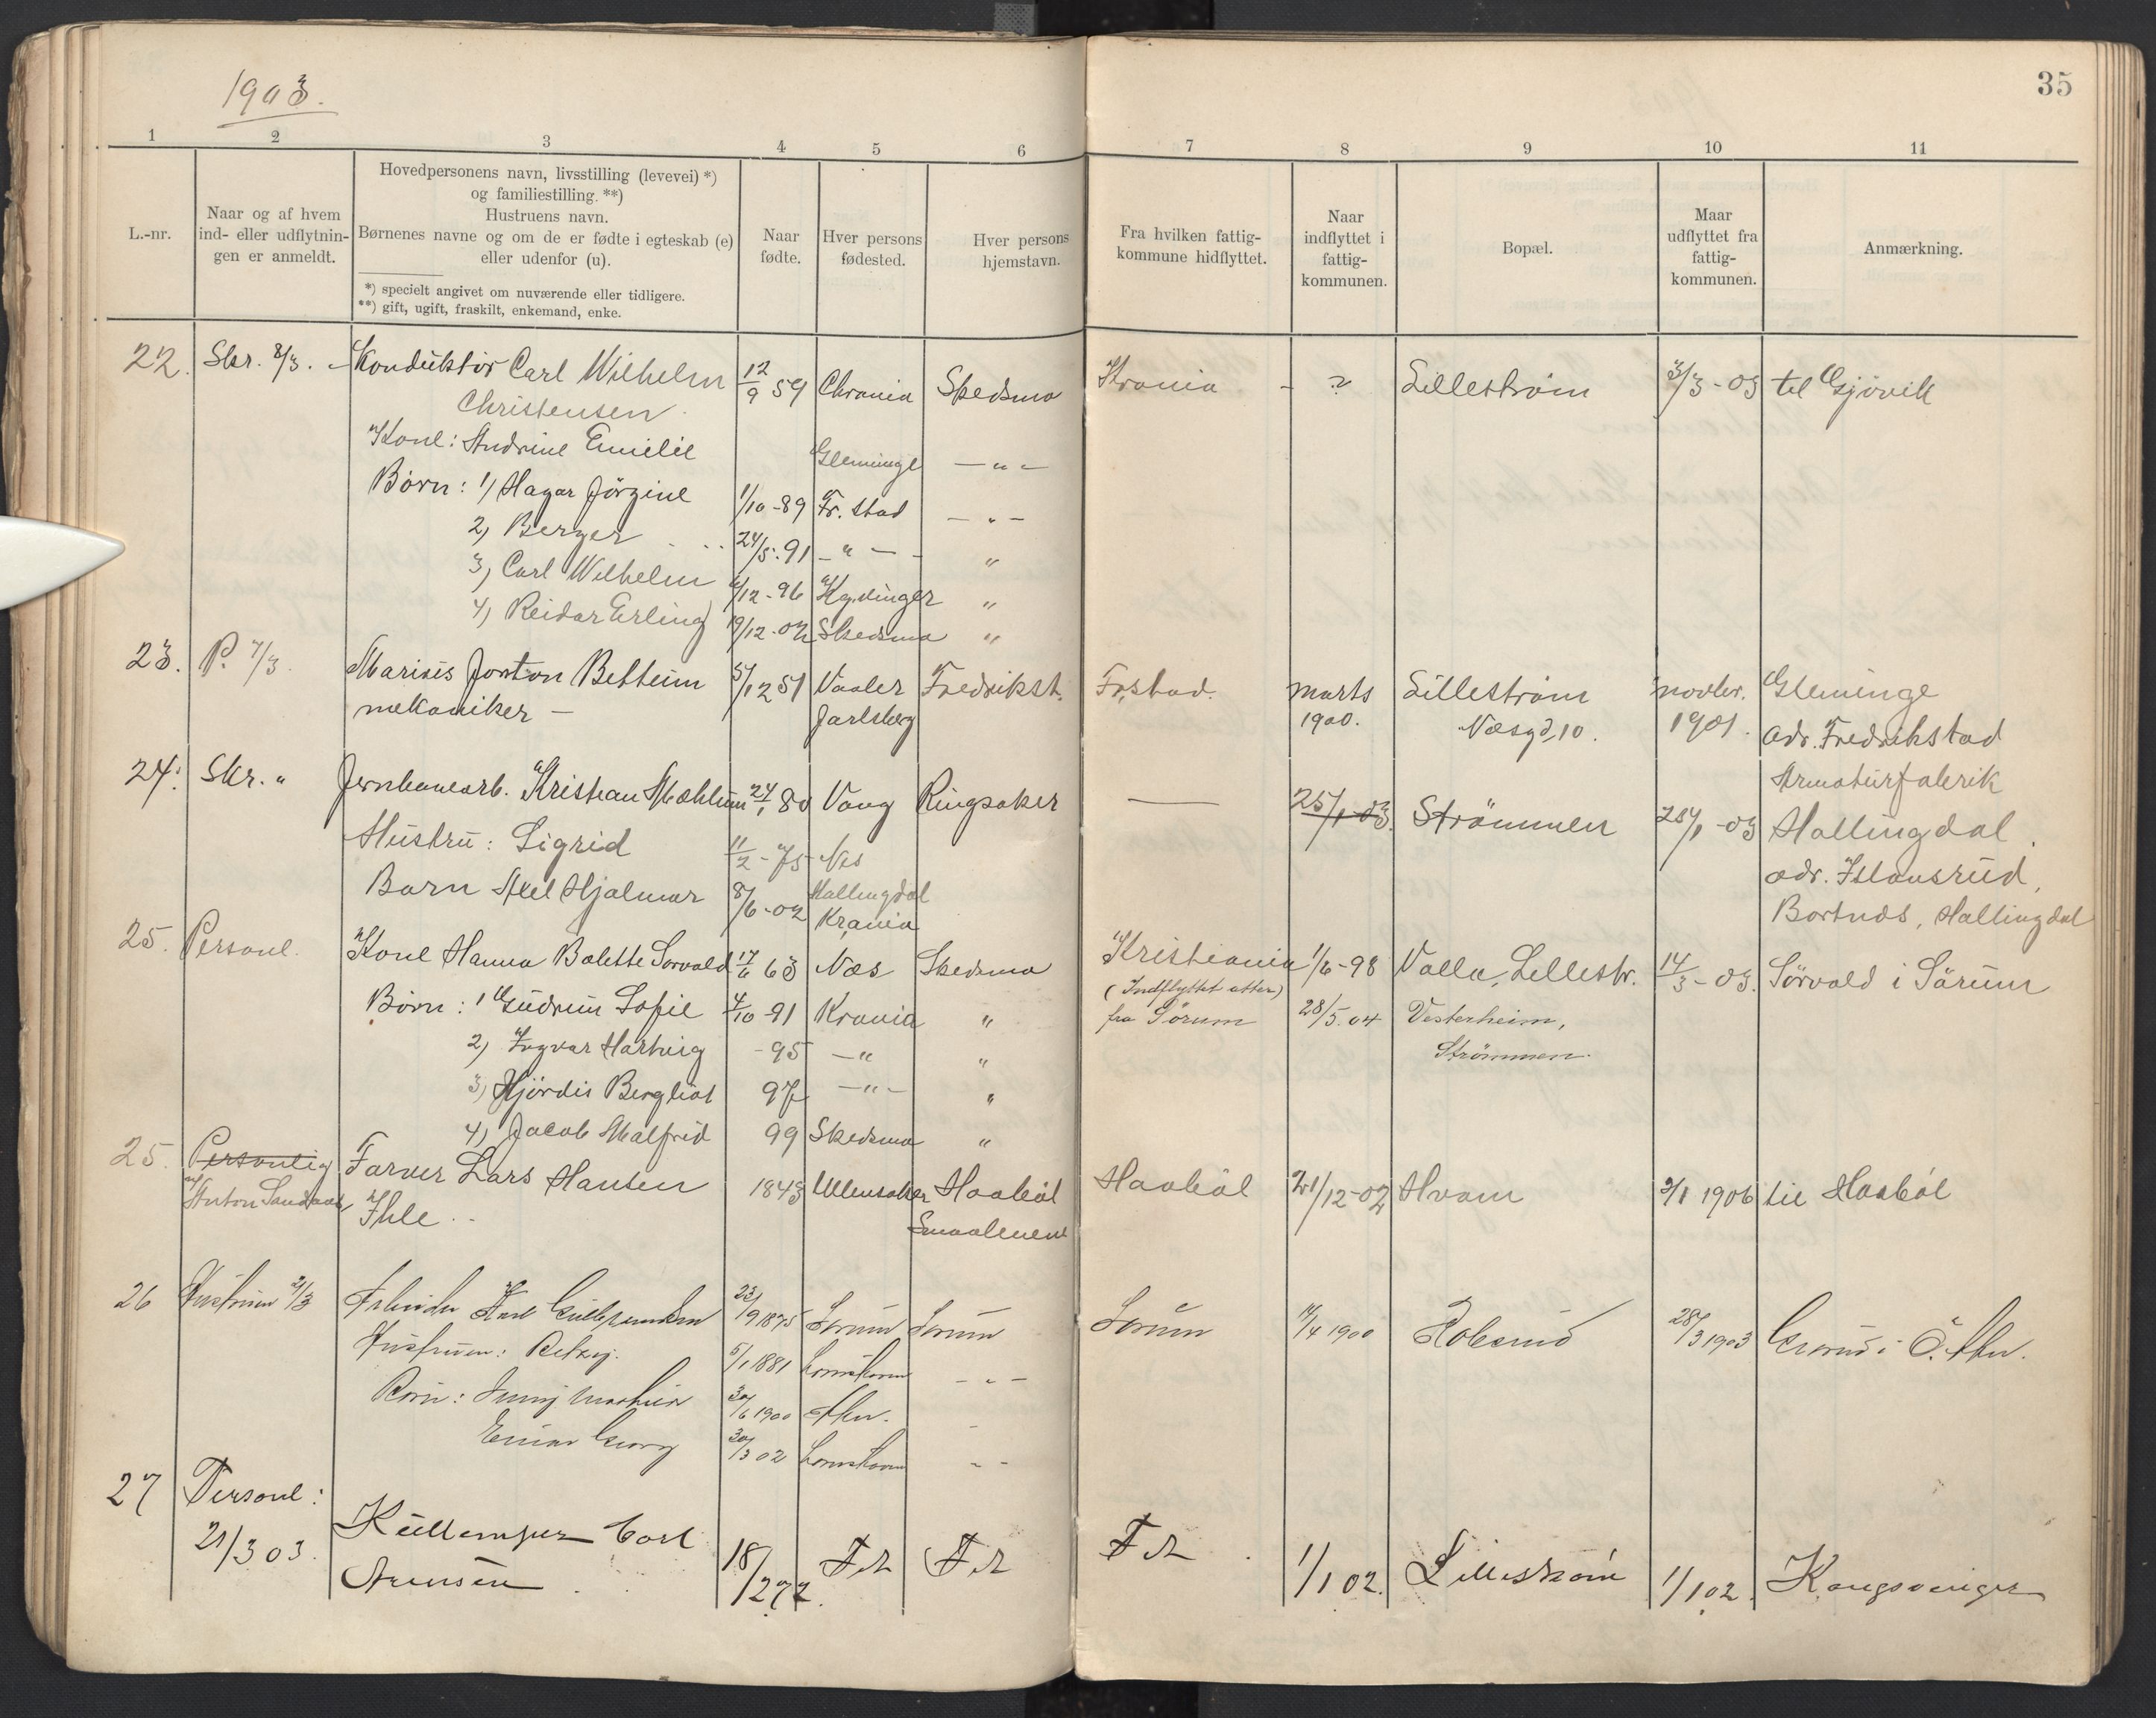 1903.
35
1 2 3 4 5 6 7 8 9 10 11
L.-nr.
Naar og af hvem
ind- eller udflytnin-
gen er anmeldt.
Hovedpersonens navn, livsstilling (levevei) *)
og familiestilling. **)
Hustruens navn.
Børnenes navne og om de er fødte i egteskab (e)
eller udenfor (u).
*) specielt angivet om nuværende eller tidligere.
**) gift, ugift, fraskilt, enkemand, enke.
Naar
fødte.
Hver persons
fødested.
Hver persons
hjemstavn.
Fra hvilken fattig-
kommune hidflyttet.
Naar
indflyttet i
fattig-
kommunen.
Bopæl.
Maar
udflyttet fra
fattig-
kommunen.
Anmærkning.
22. Skr. 8/3. Konduktør Carl Wilhelm 12/9 59 Chrania Skedsmo Krania - ? Lilleström 3/3-03 til Gjövik
Christensen
Kone: Andrine Emilie Glemminge — " —
Børn: 1) Hagar Jörgine 1/10-89 Fr. stad — " —
2) Berger 24/5.91 — " — "
3) Carl Wilhelm /12-96 Kgvinger "
4) Reidar Erling 19/12-02 Skedsmo "
23. P. 7/3. Marius Jonton Betheim 5/12 51 Vaaler Fredrikst. Fr.stad. marts Lilleström novbr. Glemminge
mekaniker — Jarlsberg 1900. Næsgd, 10. 1901. adr. Fredrikstad
Armaturfabrik
24. Skr. " Jernbanearb. Kristian Mæhlum 24/1 80 Vang Ringsaker — 25/1-03. Strömmen 25/1-03 Hallingdal.
Hustru: Sigrid 11/2-75 Nes adr. Islandsrud,
Hallingdal
Barn Axel Hjalmar 8/6-02 Krania Bortnæs, Hallingdal
25. Personl. Kone Hanna Bolette Sorvald 17/6 63 Næs Skedsmo Kristiania 1/6-98 Valla, Lillestr. 14/3-03. Sörvald i Sörum
(Indflyttet atter)
Børn: 1 Gudrun Sofie 4/10-91 Krania " fra Sörum 28/5.04 Vesterheim,
2) Ingvar Hartvig -95 — " " Strömmen.
3) Hjördis Bergliot 97 — " — "
4) Jacob Malfred 99 Skedsmo "
25. Personlig Farver Lars Hansen 1843 Ullensaker Haaböl Haaböl 21/12-02 Hvam 2/1 1906 til Haaböl
Anton Sandaas Ihle Smaalenene
26 Hustruen 21/3 Arbeider Karl Gulbrandsen 23/9 1875 Sorum Sorum Sorum 14/4 1900 28/3 1903
Hustruen: Betzy. 5/1 1881 Lørenskoven — " —
Børn: Jenny Mathia 30/6 1900 Ahn.
Einar Georg 30/3 02 Lørenskoven — " —
27 Personl:
21/3 03. Carl 18/2 72. Fet Fet Fet 1/1 02. Lilleström 1/1 02. Kongsvinger
Arensen